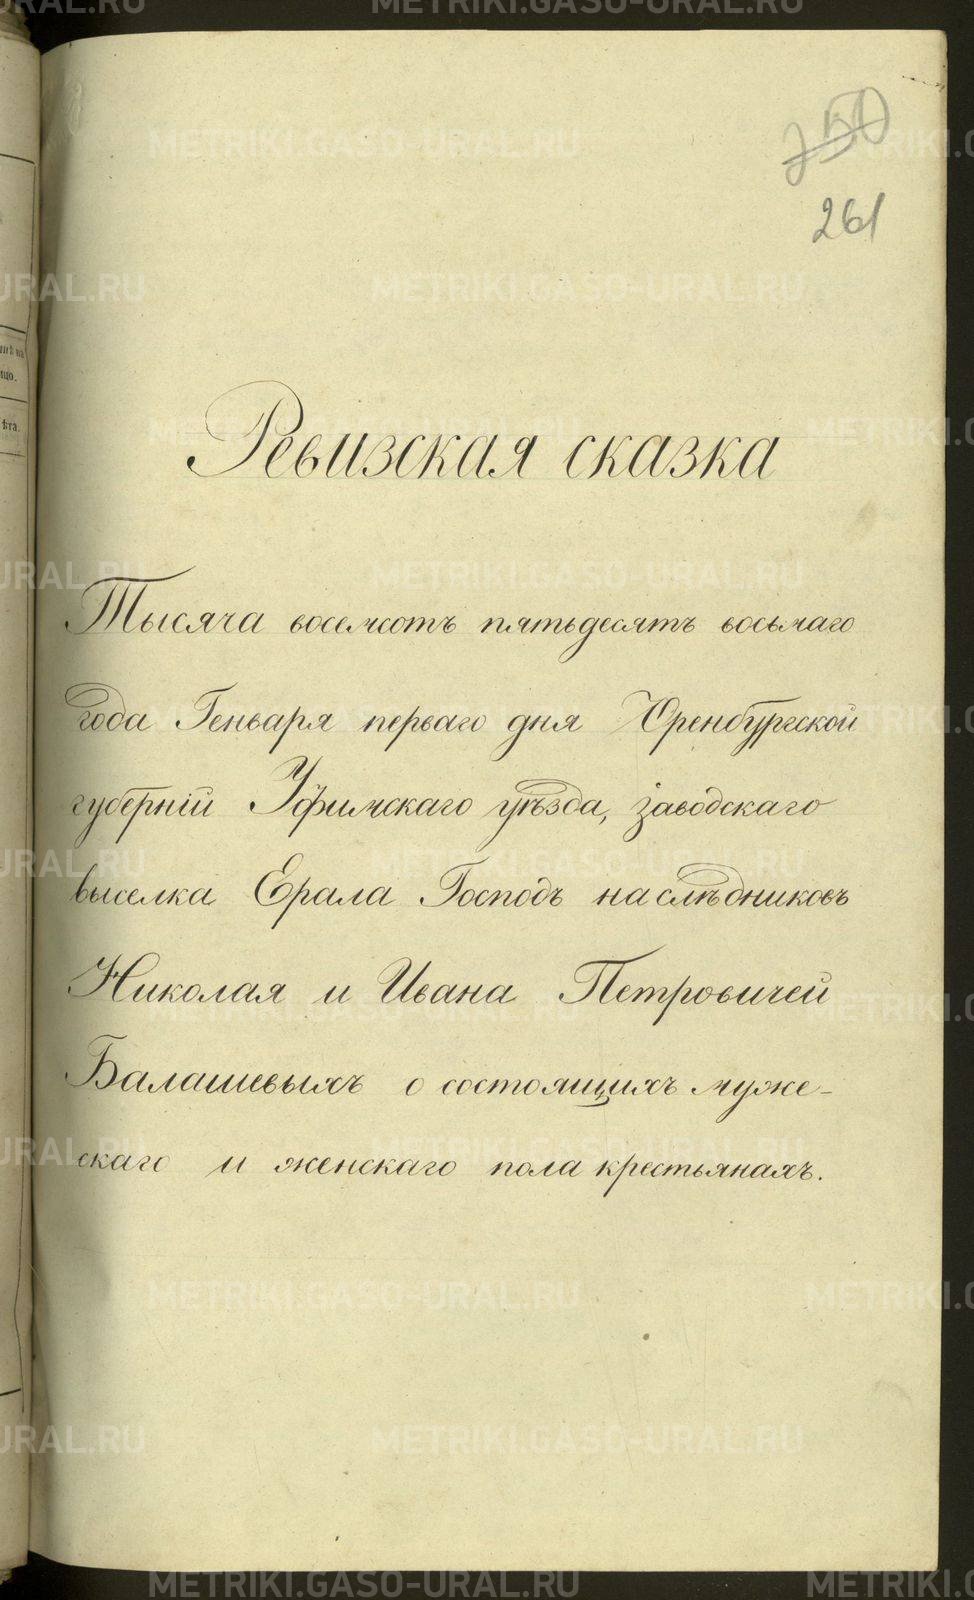 250
261
Ревизская сказка
Тысяча восемсотъ пятьдесятъ восьмаго
года Генваря перваго дня Оренбургской
губерніи Уфимскаго уѣзда, заводскаго
выселка Ерала Господъ наслѣдниковъ
Николая и Ивана Петровичей
Балашевыхъ о состоящихъ муже-
скаго и женскаго пола крестьянахъ.
METRIKI.GASO-URAL.RU